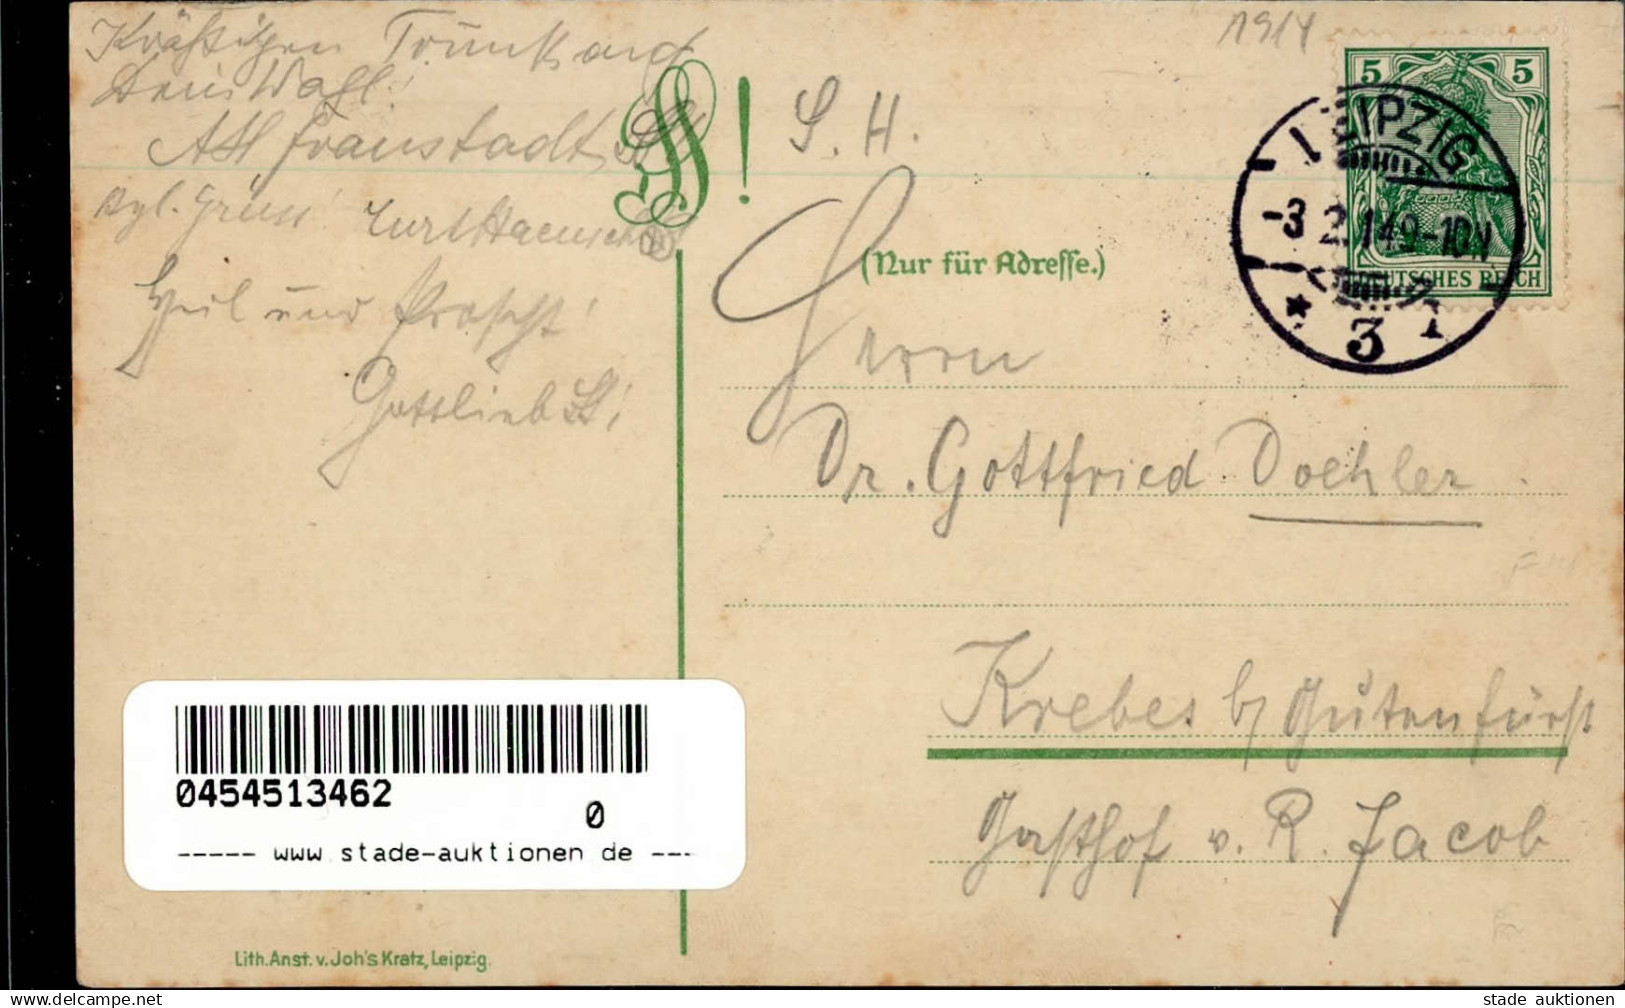 Kräftigen Trunk auf
Dein Wohl!
AH Fraustadt
Kurt
Heil und Proscht!
Gottlieb
1914
!
S. H.
(Nur für Adresse.)
Herrn
Dr. Gottfried Doehler
Krebes b/ Gutenfürst
Gasthof v. R. Jacob
5 5
DEUTSCHES REICH
LEIPZIG
-3.2.14.9-10N
* 3 1
0454513462
0
----- www.stade-auktionen.de ---
Lith. Anst. v. Joh's Kratz, Leipzig.
stade auktionen
www.delcampe.net